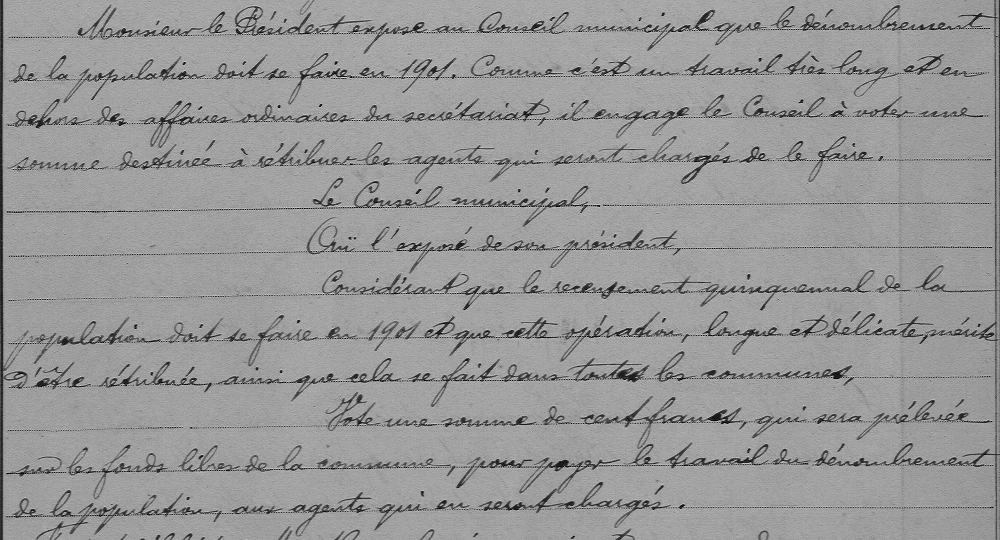 Monsieur le Président expose au Conseil municipal que le dénombrement
de la population doit se faire en 1901. Comme c'est un travail très long et en
dehors des affaires ordinaires du secrétariat, il engage le Conseil à voter une
somme destinée à rétribuer les agents qui seront chargés de le faire.
Le Conseil municipal,
Ouï l'exposé de son président,
Considérant que le recensement quinquennal de la
population doit se faire en 1901 et que cette opération, longue et délicate, mérite
d'être rétribuée, ainsi que cela se fait dans toutes les communes,
Vote une somme de cent francs, qui sera prélevée
sur les fonds libres de la commune, pour payer le travail du dénombrement
de la population, aux agents qui en seront chargés.